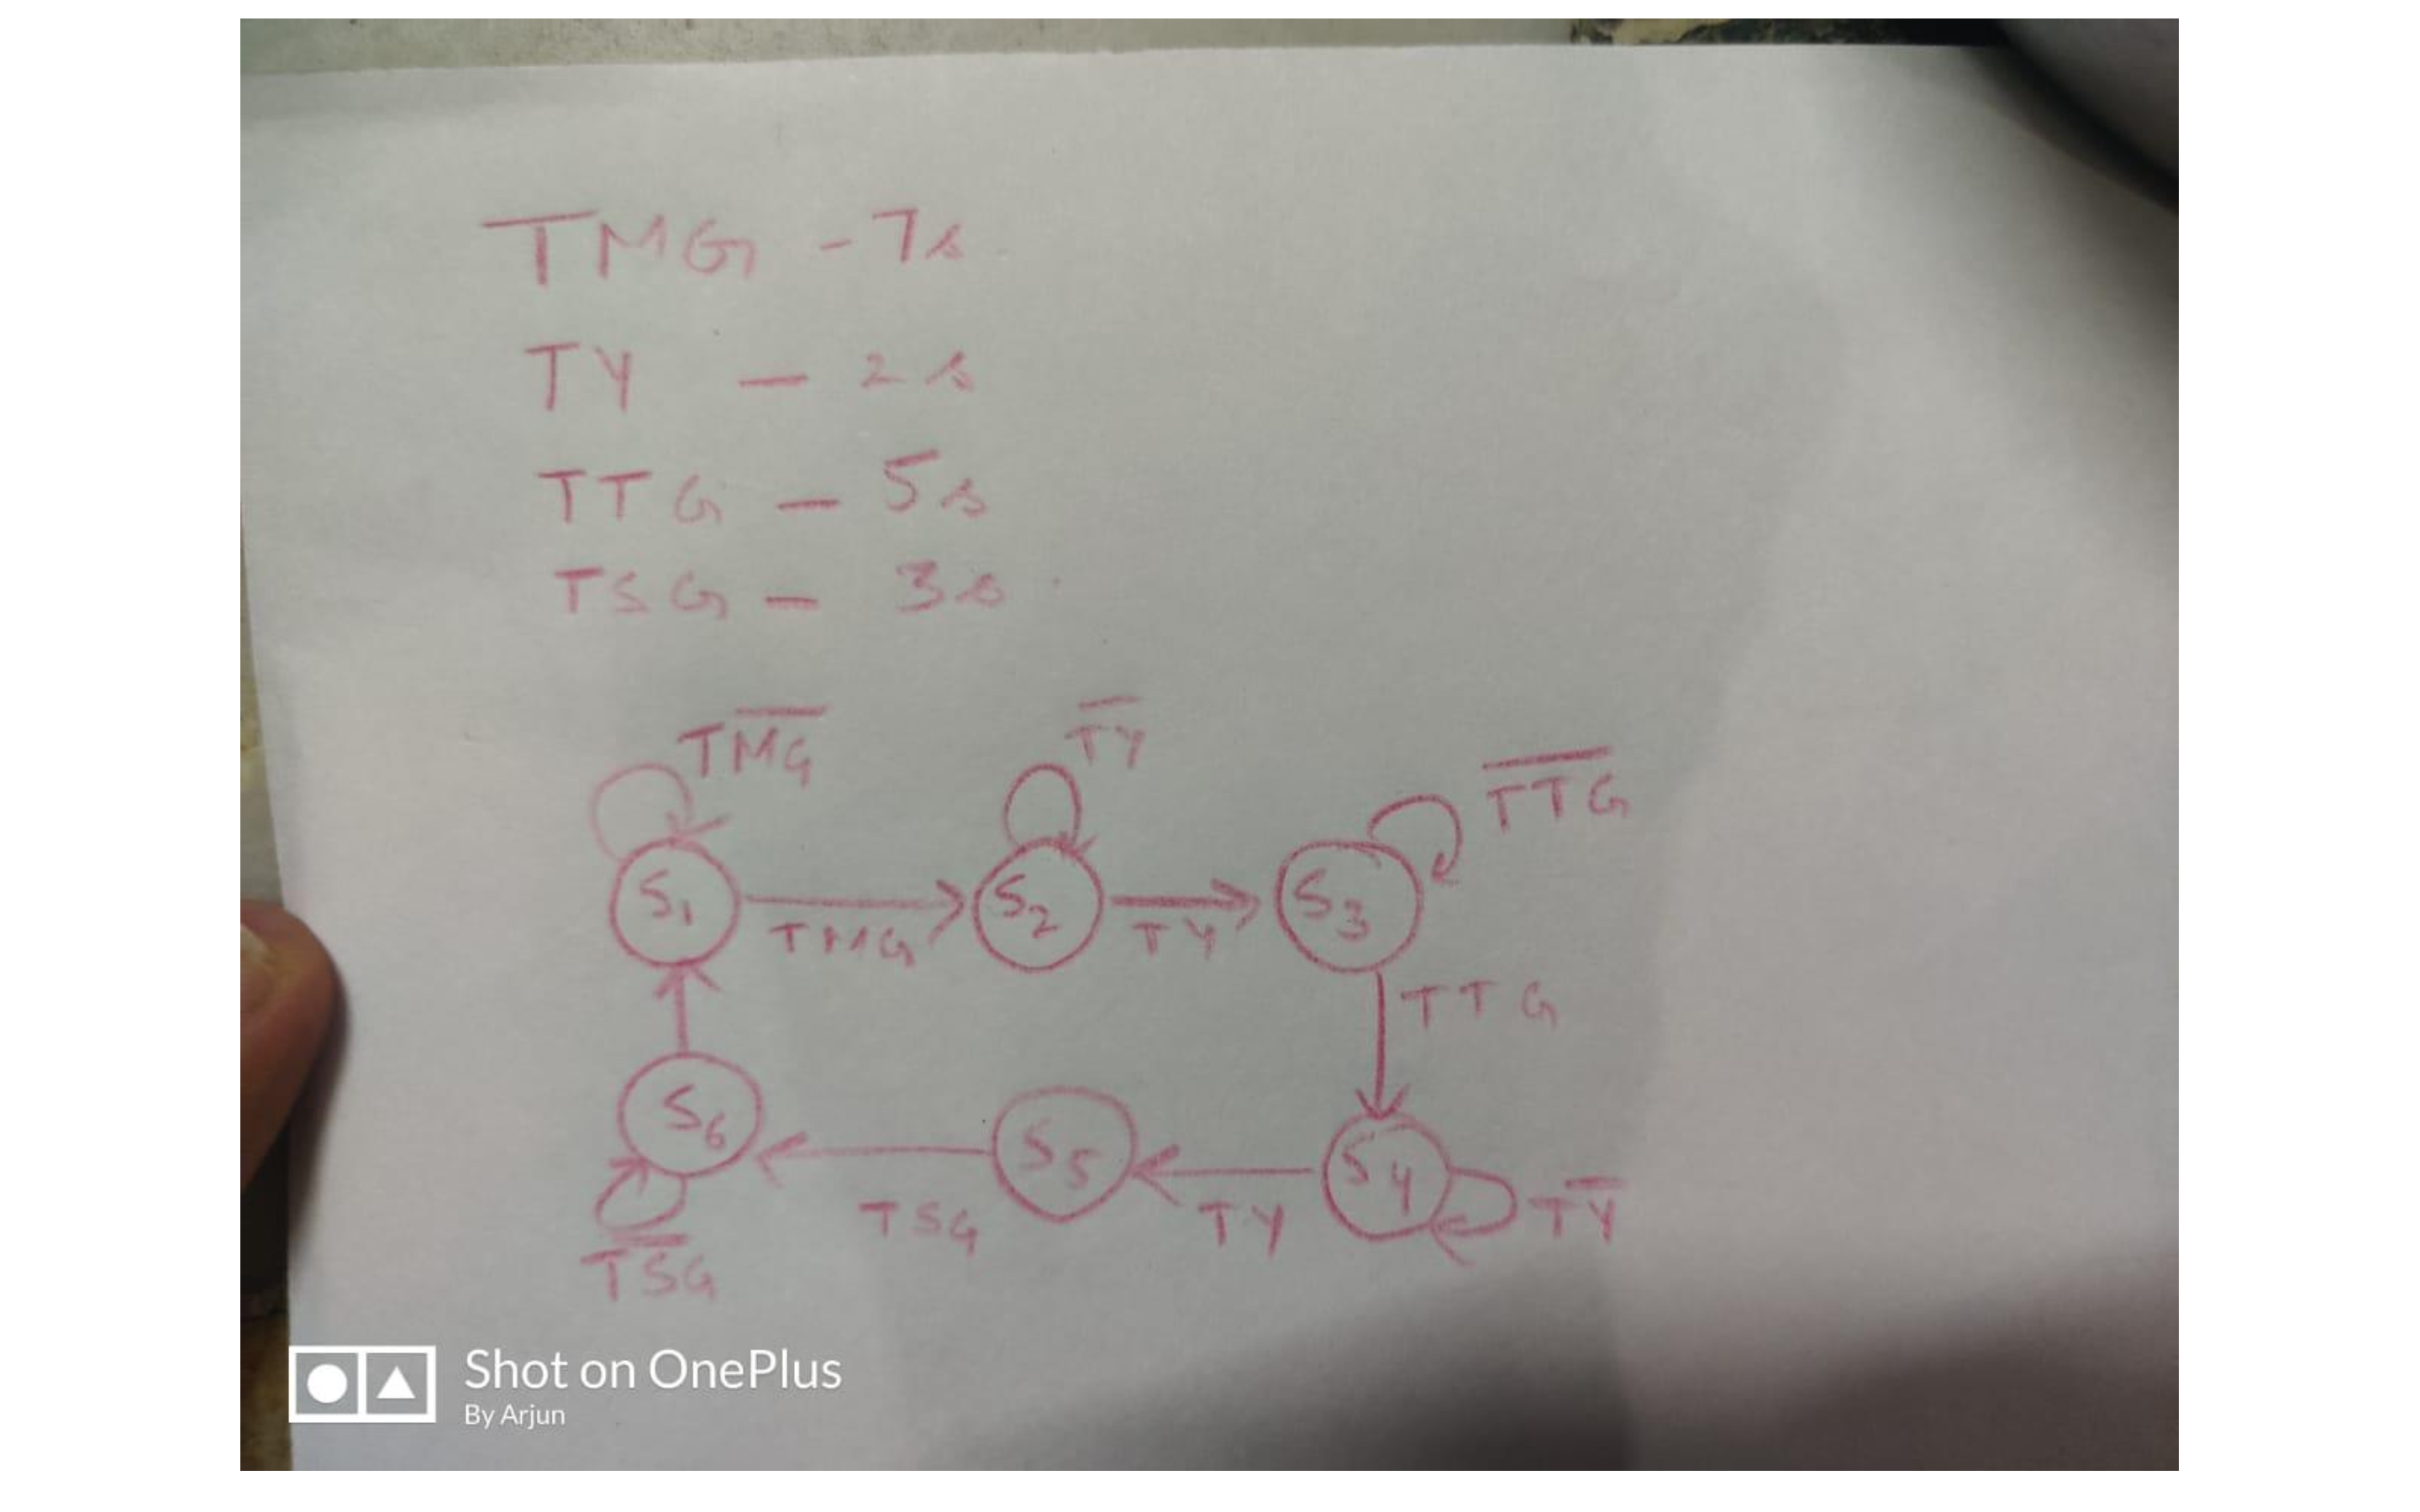 TMG - 7s
TY - 2s
TTG - 5s
TSG - 3s
TMG
TY
TTG
S1
S2
S3
TMG
TY
TTG
S6
S5
S4
TSG
TY
TY
TSG
Shot on OnePlus
By Arjun